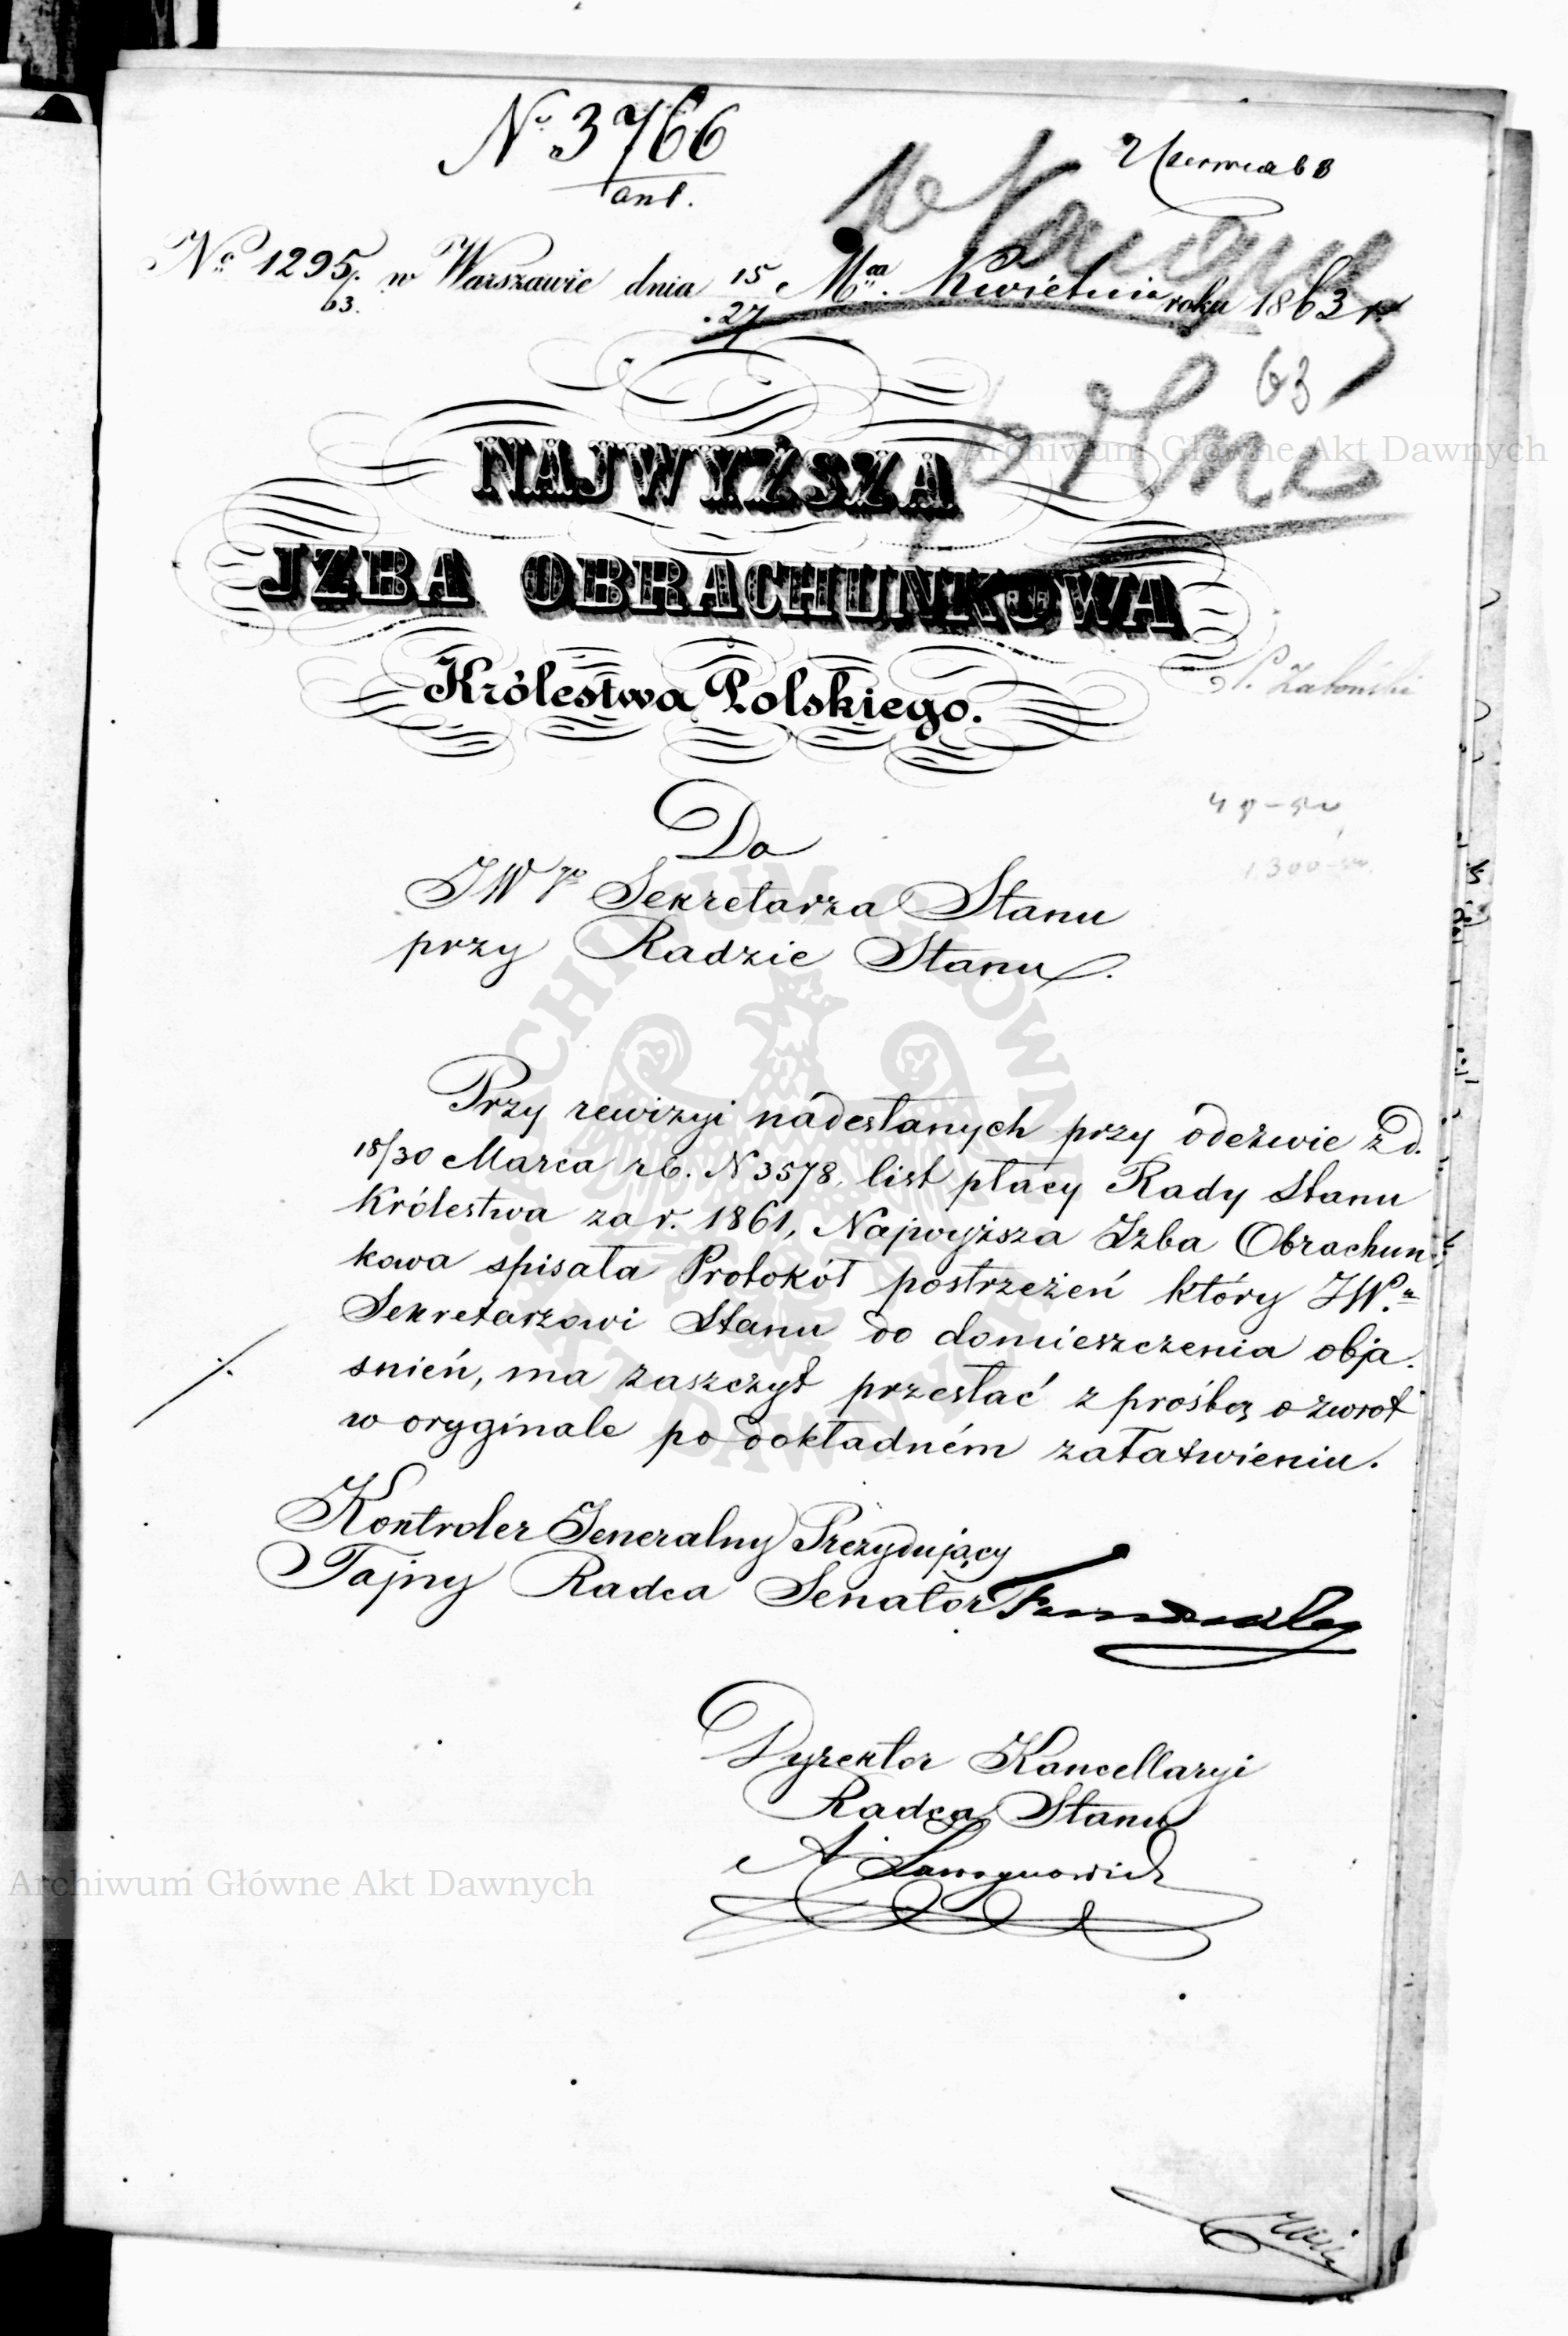 No 3766
ant.
Czerwca 63
No 1295/63. w Warszawie dnia 15/27 Mca. Kwietnia roku 1863 r.
63
NAJWYŻSZA
JZBA OBRACHUNKOWA
Królestwa Polskiego.
Do
JWgo Sekretarza Stanu
przy Radzie Stanu.
Przy rewizyi nadesłanych przy odezwie z d.
18/30 Marca rb. N 3578, list płacy Rady Stanu
Królestwa za r. 1861, Najwyższa Izba Obrachun
kowa spisała Protokół postrzeżeń który JW.u
Sekretarzowi Stanu do domieszczenia obja
snień, ma zaszczyt przesłać z prośbą o zwrot
w oryginale po dokładném załatwieniu.
Kontroler Jeneralny Prezydujący
Tajny Radca Senator
Dyrektor Kancellaryi
Radca Stanu
A.
Archiwum Główne Akt Dawnych
Archiwum Główne Akt Dawnych
ARCHIWUM GŁÓWNE AKT DAWNYCH